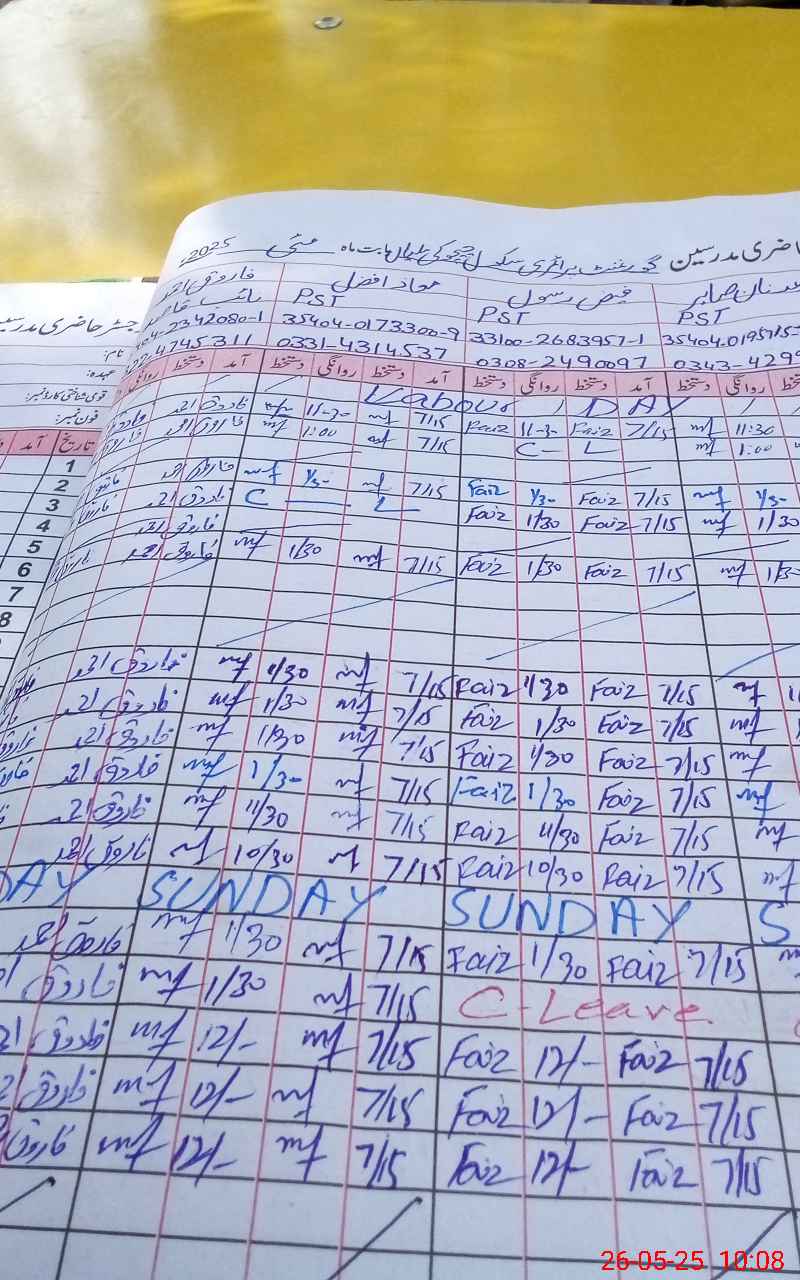 حاضری مدرسین گورنمنٹ پرائمری سکول بابت ماہ مئی 2025ء
فاروق احمد جواد افضل فیض رسول عدنان صابر
نائب قاصد PST PST PST
2342080-1 35404-0173300-9 33100-2683957-1 35404-019575
4745311 0331-4314537 0308-2490097 0343-429
روانگی دستخط آمد دستخط روانگی دستخط آمد دستخط روانگی دستخط آمد دستخط روانگی
Labour DAY
فاروق احمد mf 11-3- mf 7/15 Faiz 11-3- Faiz 7/15 mf 11:30
فاروق احمد mf 1:00 mf 7/15 C - L mf 1:00
فاروق احمد mf 1/3- mf 7/15 Faiz 1/3- Faiz 7/15 mf 1/3-
فاروق احمد C L Faiz 1/30 Faiz 7/15 mf 1/30
فاروق احمد
فاروق احمد mf 1/30 mf 7/15 Faiz 1/30 Faiz 7/15 mf 1/3
فاروق احمد mf 1/30 mf 7/15 Faiz 1/30 Faiz 7/15 mf
فاروق احمد mf 1/30 mf 7/15 Faiz 1/30 Faiz 7/15 mf
فاروق احمد mf 1/30 mf 7/15 Faiz 1/30 Faiz 7/15 mf
فاروق احمد mf 1/30 mf 7/15 Faiz 1/30 Faiz 7/15 mf
فاروق احمد mf 11/30 mf 7/15 Faiz 11/30 Faiz 7/15 mf
فاروق احمد mf 10/30 mf 7/15 Faiz 10/30 Faiz 7/15 mf
DAY SUNDAY SUNDAY S
فاروق احمد mf 1/30 mf 7/15 Faiz 1/30 Faiz 7/15
فاروق احمد mf 1/30 mf 7/15 C-Leave
فاروق احمد mf 12/- mf 7/15 Faiz 12/- Faiz 7/15
فاروق احمد mf 12/- mf 7/15 Faiz 12/- Faiz 7/15
فاروق mf 12/- mf 7/15 Faiz 12/- Faiz 7/15
رجسٹر حاضری مدرسین
نام:
عہدہ:
قومی شناختی کارڈ نمبر:
فون نمبر:
تاریخ آمد
1
2
3
4
5
6
7
8
26-05-25 10:08